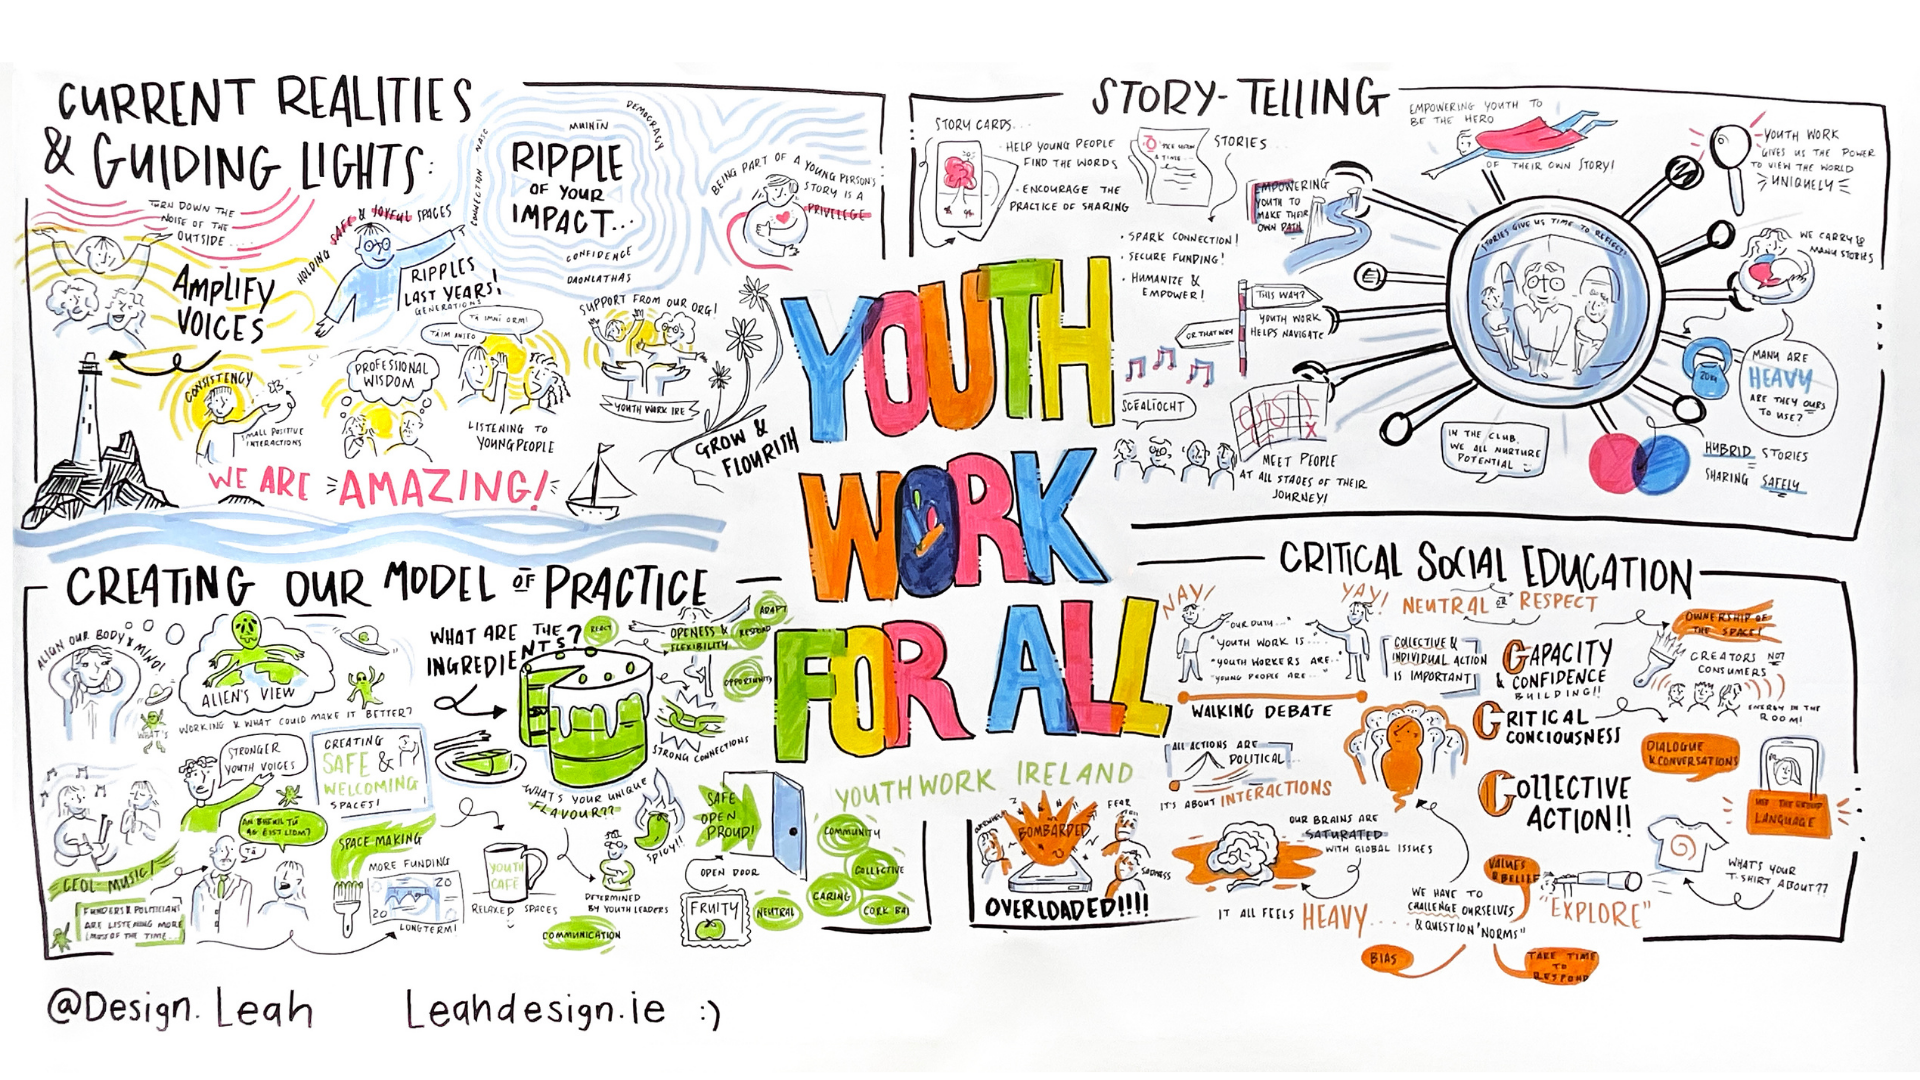 CURRENT REALITIES
& GUIDING LIGHTS:
TURN DOWN THE
NOISE OF THE
OUTSIDE.....
AMPLIFY
VOICES
HOLDING SAFE & JOYFUL SPACES
RIPPLES
LAST YEARS!
GENERATIONS
CONNECTION
MUINÍN
DEMOCRACY
RIPPLE
OF YOUR
IMPACT...
CONFIDENCE
DAONLATHAS
BEING PART OF A YOUNG PERSON'S
STORY IS A
PRIVILEGE
CONSISTENCY
SMALL POSITIVE
INTERACTIONS
PROFESSIONAL
WISDOM
TÁIM ANSEO
TÁ IMNÍ ORM!
LISTENING TO
YOUNG PEOPLE
SUPPORT FROM OUR ORG!
YOUTH WORK IRE
GROW &
FLOURISH
WE ARE AMAZING!
STORY-TELLING
STORY CARDS...
- HELP YOUNG PEOPLE
FIND THE WORDS
- ENCOURAGE THE
PRACTICE OF SHARING
STORIES...
• SPARK CONNECTION!
• SECURE FUNDING!
• HUMANIZE &
EMPOWER!
EMPOWERING
YOUTH TO
MAKE THEIR
OWN PATH
EMPOWERING YOUTH TO
BE THE HERO
OF THEIR OWN STORY!
YOUTH WORK
GIVES US THE POWER
TO VIEW THE WORLD
UNIQUELY
STORIES GIVE US TIME TO REFLECT!
WE CARRY
MANY STORIES
THIS WAY?
OR THAT WAY
YOUTH WORK
HELPS NAVIGATE
20KG
MANY ARE
HEAVY
ARE THEY OURS
TO USE?
SCÉALÍOCHT
MEET PEOPLE
AT ALL STAGES OF THEIR
JOURNEY!
IN THE CLUB,
WE ALL NURTURE
POTENTIAL
HYBRID STORIES
SHARING SAFELY
YOUTH
WORK
FOR ALL
YOUTH WORK IRELAND
CREATING OUR MODEL OF PRACTICE
ALIGN OUR BODY & MIND!
ALIEN'S VIEW
WHAT'S
WORKING & WHAT COULD MAKE IT BETTER?
WHAT ARE THE
INGREDIENTS?
REACT
OPENESS &
FLEXIBILITY
ADAPT
RESPOND
OPPORTUNITY
STRONG CONNECTIONS
STRONGER
YOUTH VOICES
CREATING
SAFE &
WELCOMING
SPACES!
WHAT'S YOUR UNIQUE
FLAVOUR??
SPICY!!
SAFE
OPEN
PROUD!
OPEN DOOR
AN BHFUIL TÚ
AG ÉIST LIOM?
TÁ
CEOL-MUSIC!
FUNDERS & POLITICIANS
ARE LISTENING MORE
(MOST OF THE TIME...
SPACE MAKING
MORE FUNDING
20
20
LONGTERM!
YOUTH
CAFÉ
RELAXED SPACES
DETERMINED
BY YOUTH LEADERS
COMMUNICATION
FRUITY
NEUTRAL
COMMUNITY
COLLECTIVE
CARING
CRITICAL SOCIAL EDUCATION
NAY!
YAY!
"OUR DUTY..."
"YOUTH WORK IS....
"YOUTH WORKERS ARE.."
"YOUNG PEOPLE ARE..."
WALKING DEBATE
NEUTRAL OR RESPECT
COLLECTIVE &
INDIVIDUAL ACTION
IS IMPORTANT
CAPACITY
& CONFIDENCE
BUILDING!!
CRITICAL
CONCIOUSNESS
COLLECTIVE
ACTION!!
OWNERSHIP OF
THE SPACE!
CREATORS NOT
CONSUMERS
ENERGY IN THE
ROOM!
DIALOGUE
& CONVERSATIONS
USE THE GROUP
LANGUAGE
ALL ACTIONS ARE
POLITICAL...
IT'S ABOUT INTERACTIONS
BOMBARDED
FEAR
SADNESS
OVERLOADED!!!!
OUR BRAINS ARE
SATURATED
WITH GLOBAL ISSUES
IT ALL FEELS HEAVY....
WE HAVE TO
CHALLENGE OURSELVES
& QUESTION "NORMS"
VALUES
& BELIEF
BIAS
TAKE TIME
TO
RESPOND
"EXPLORE"
WHAT'S YOUR
T-SHIRT ABOUT??
@Design.Leah
Leahdesign.ie :)